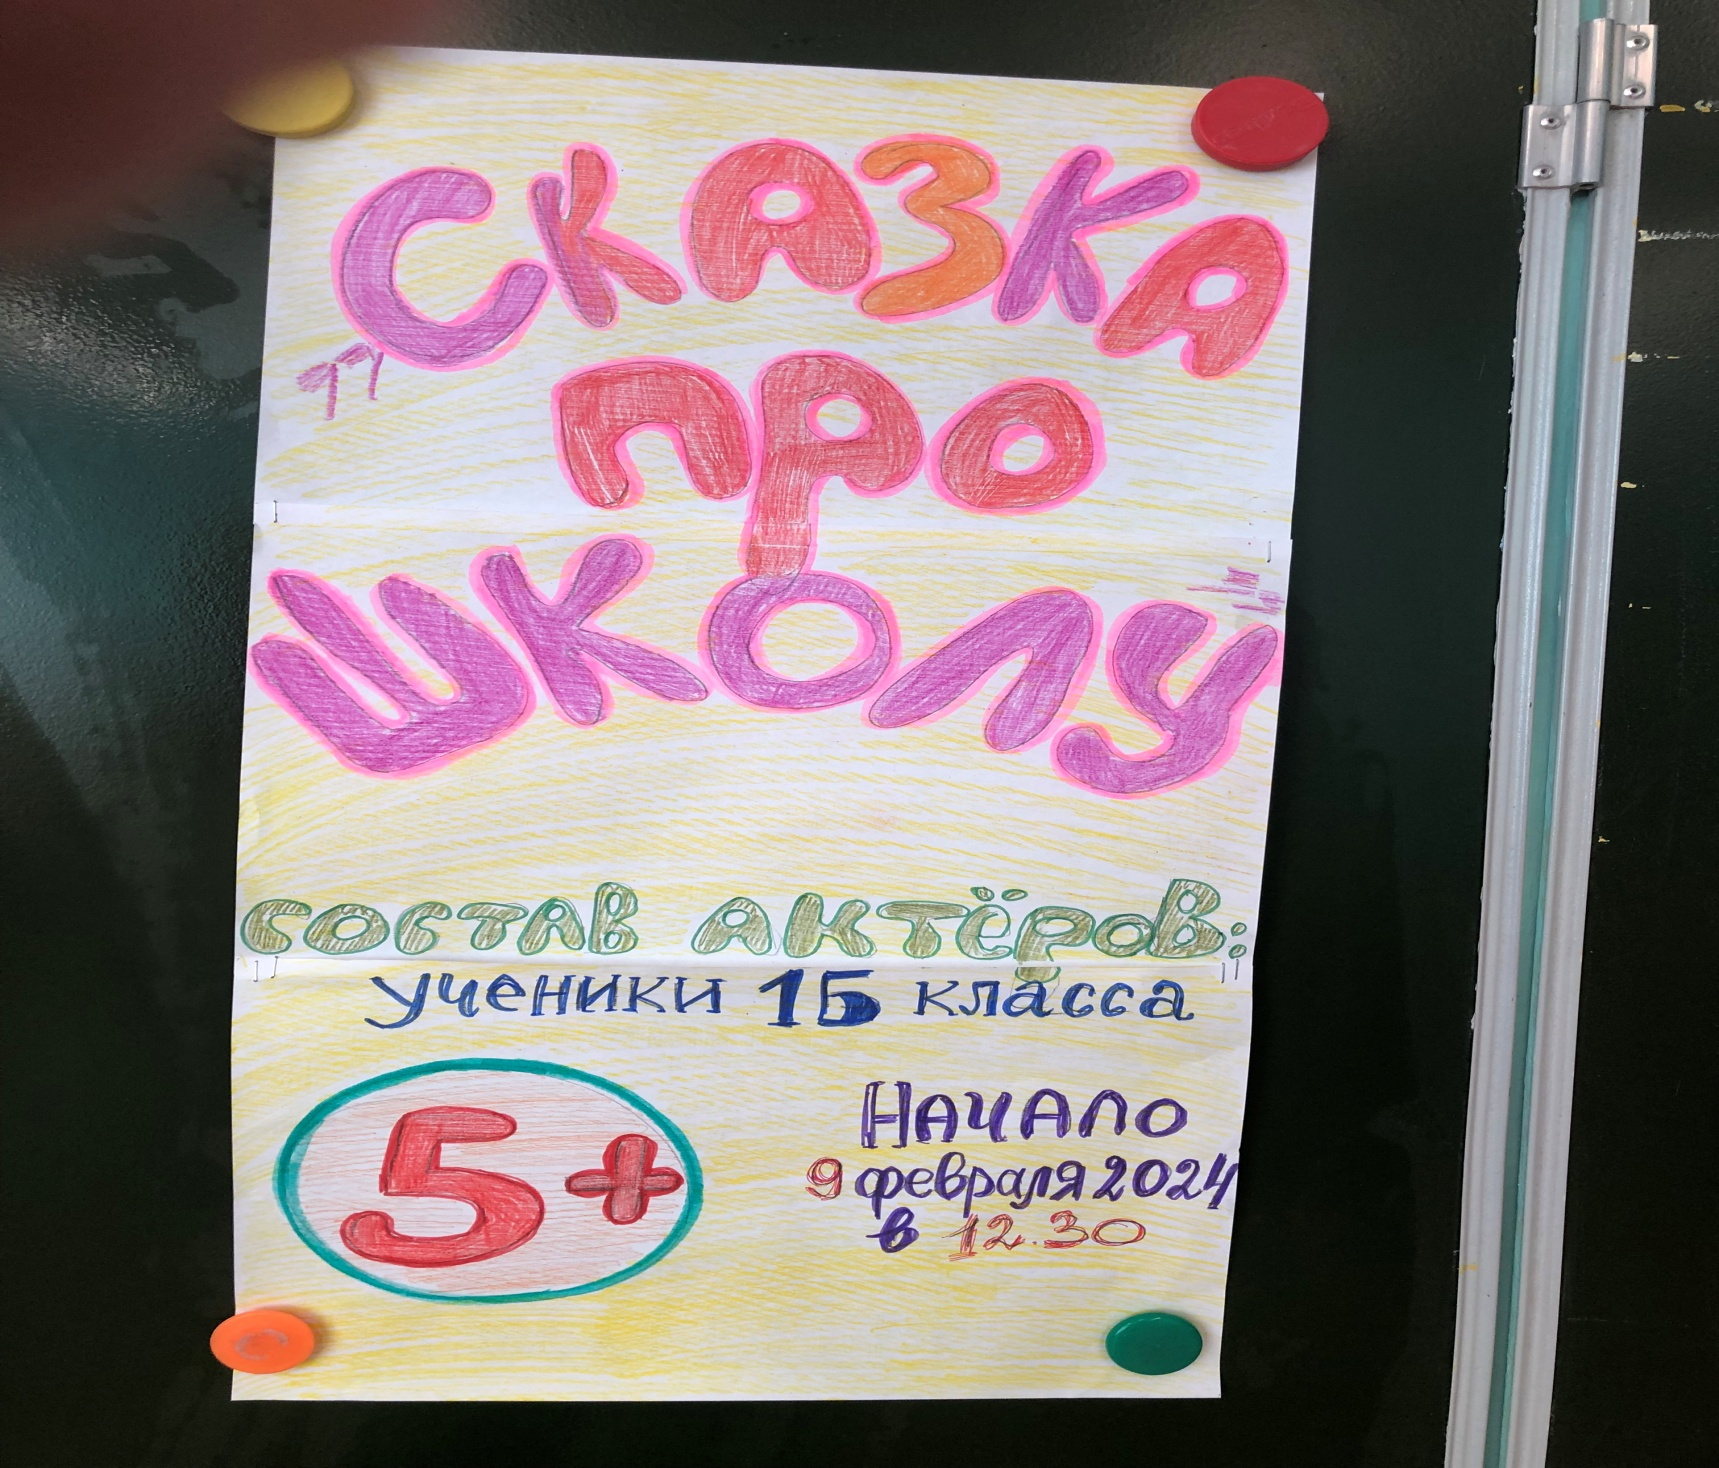 СКАЗКА
ПРО
ШКОЛУ
СОСТАВ АКТЁРОВ:
ученики 1Б класса
5+
НАЧАЛО
9 февраля 2024
в 12.30